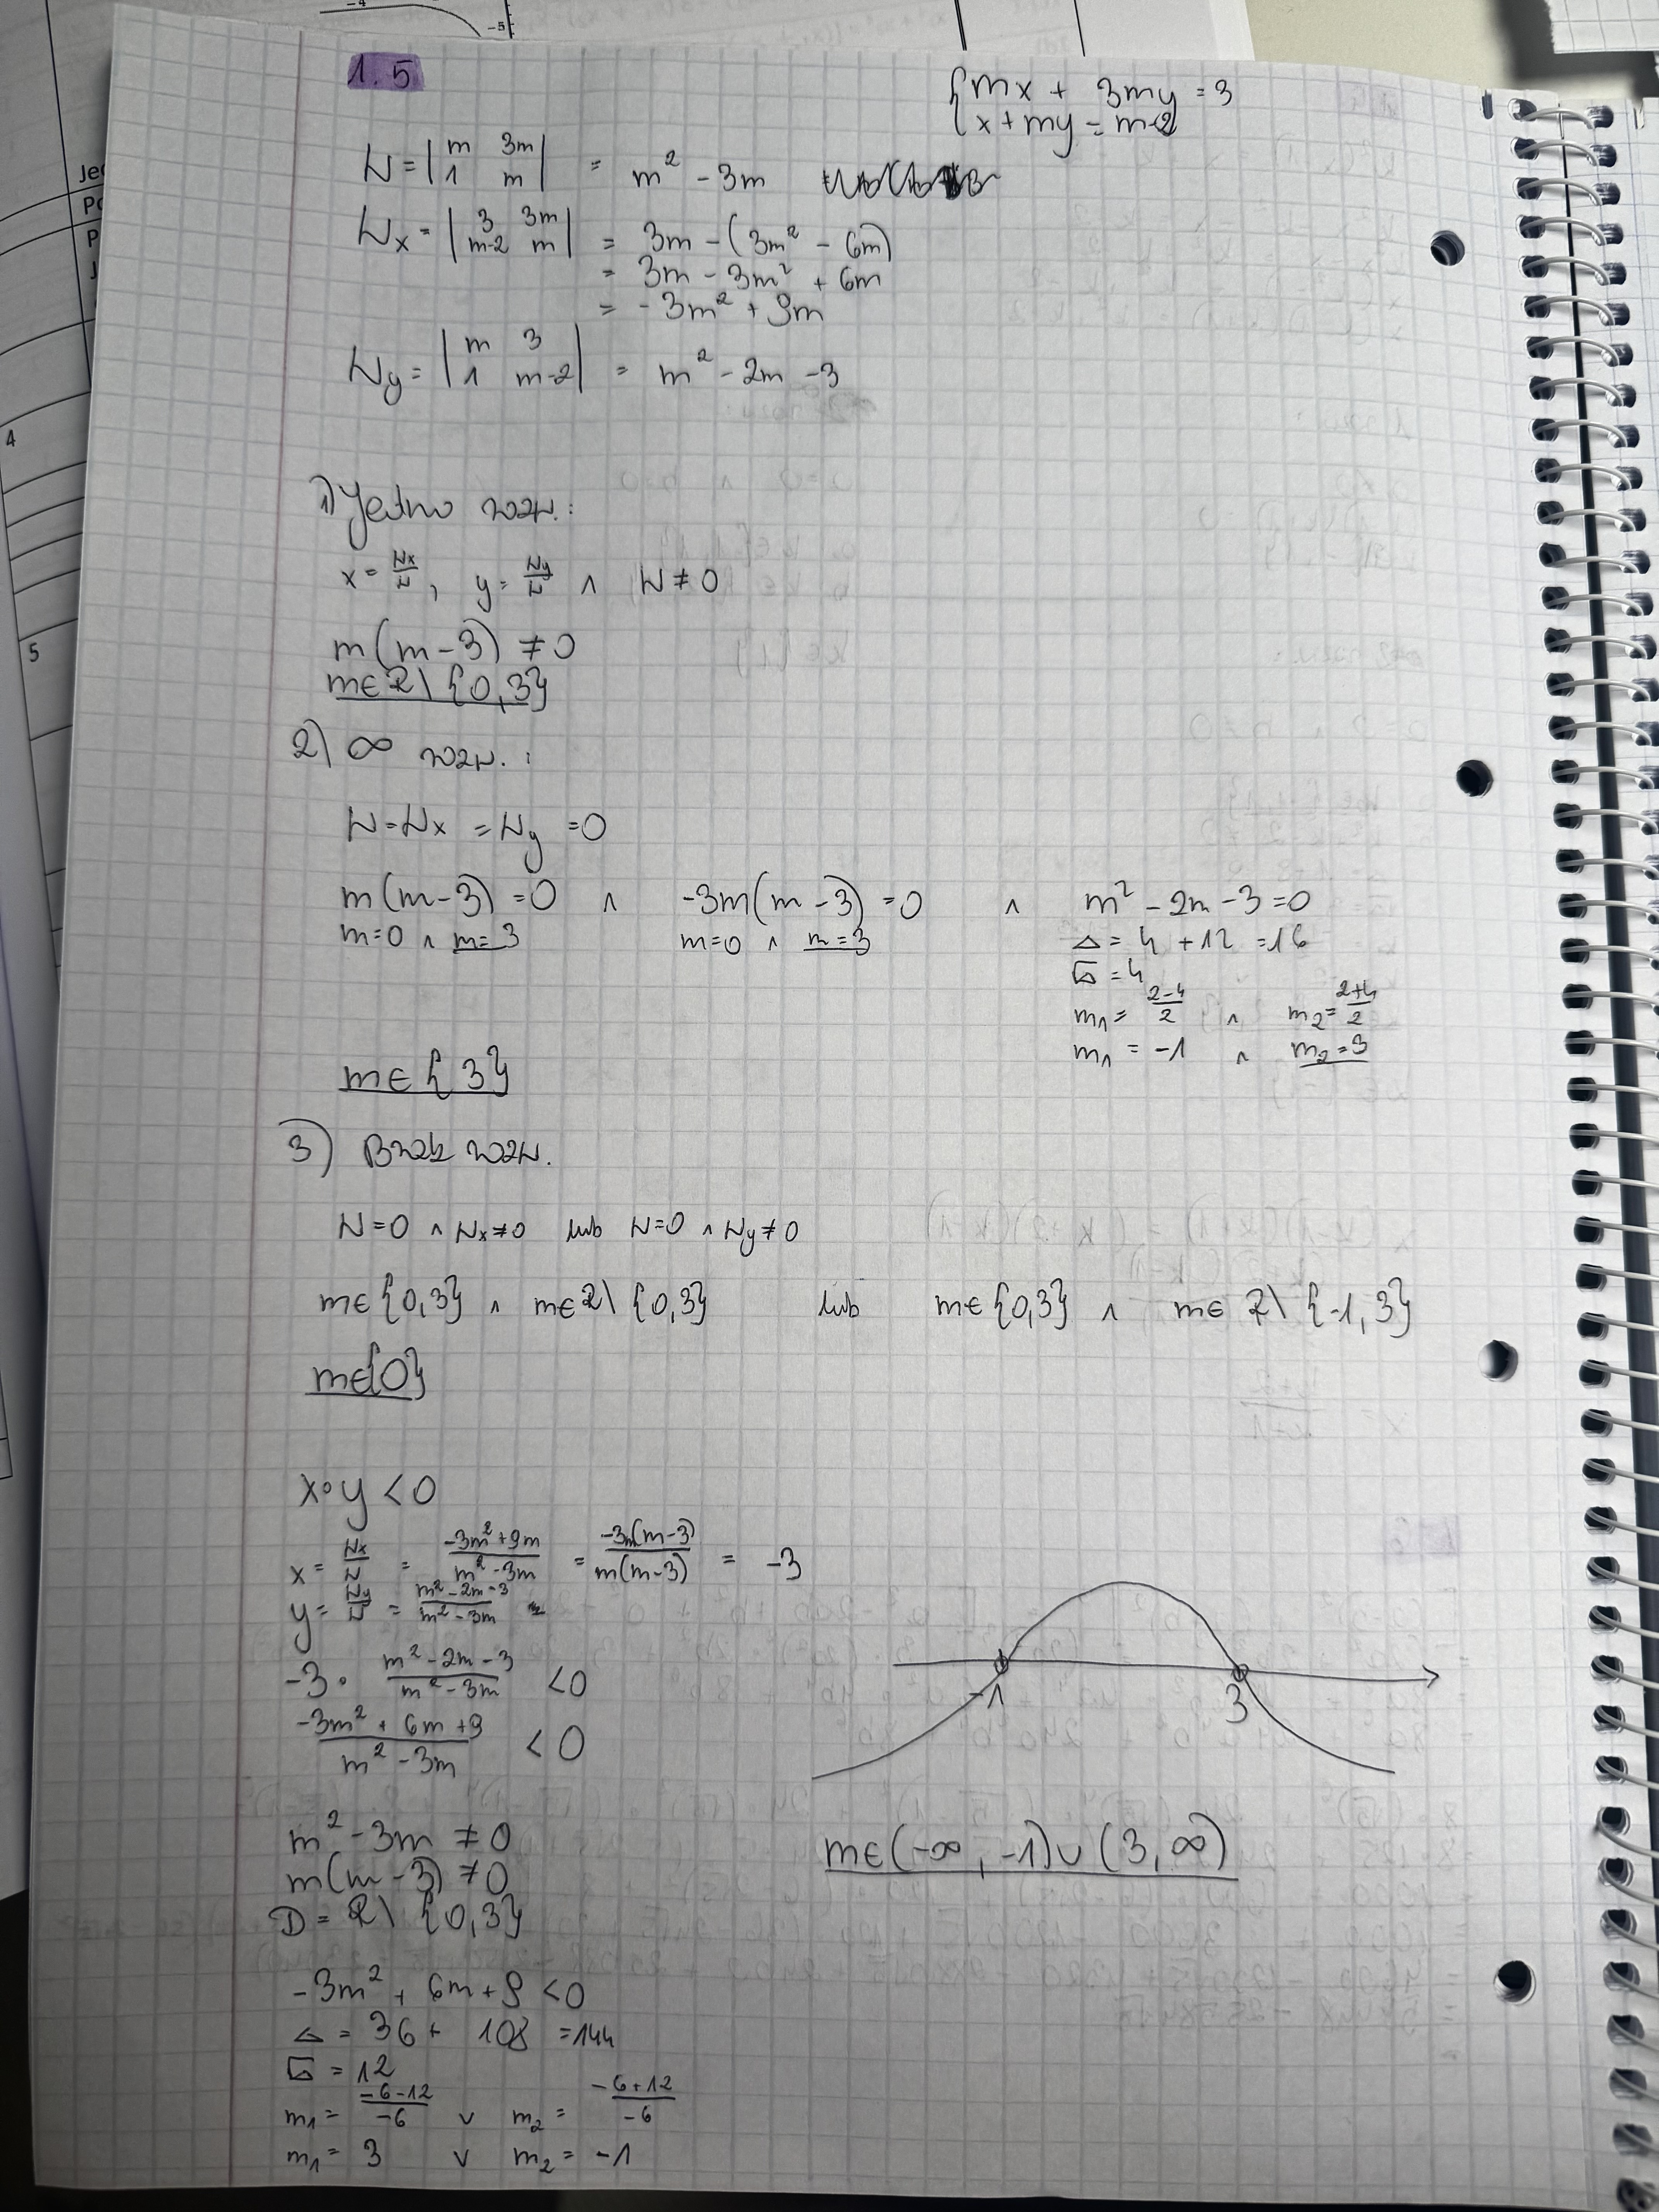 -4
-5
Jed
Po
P
J
4
5
1.5
{mx + 3my = 3
{x + my = m-2
W = |m 3m|
|1 m| = m² - 3m
Wx = |3 3m|
|m-2 m| = 3m - (3m² - 6m)
= 3m - 3m² + 6m
= -3m² + 9m
Wy = |m 3|
|1 m-2| = m² - 2m - 3
1) Jedno rozw.:
x = Wx/W, y = Wy/W ∧ W ≠ 0
m(m-3) ≠ 0
m∈R\{0,3}
2) ∞ rozw. :
W = Wx = Wy = 0
m(m-3) = 0 ∧ -3m(m-3) = 0 ∧ m² - 2m - 3 = 0
m=0 ∧ m=3 m=0 ∧ m=3 Δ = 4 + 12 = 16
√Δ = 4
m₁ = (2-4)/2 ∧ m₂ = (2+4)/2
m₁ = -1 ∧ m₂ = 3
m∈{3}
3) Brak rozw.
W=0 ∧ Wx≠0 lub W=0 ∧ Wy≠0
m∈{0,3} ∧ m∈R\{0,3} lub m∈{0,3} ∧ m∈R\{-1,3}
m∈{0}
x·y < 0
x = Wx/W = (-3m²+9m)/(m²-3m) = (-3m(m-3))/(m(m-3)) = -3
y = Wy/W = (m²-2m-3)/(m²-3m) =
-3 · (m²-2m-3)/(m²-3m) < 0
(-3m² + 6m + 9)/(m² - 3m) < 0
-1 3
m² - 3m ≠ 0
m(m-3) ≠ 0
D = R\{0,3}
m∈(-∞, -1)∪(3, ∞)
-3m² + 6m + 9 < 0
Δ = 36 + 108 = 144
√Δ = 12
m₁ = (-6-12)/-6 ∨ m₂ = (-6+12)/-6
m₁ = 3 ∨ m₂ = -1